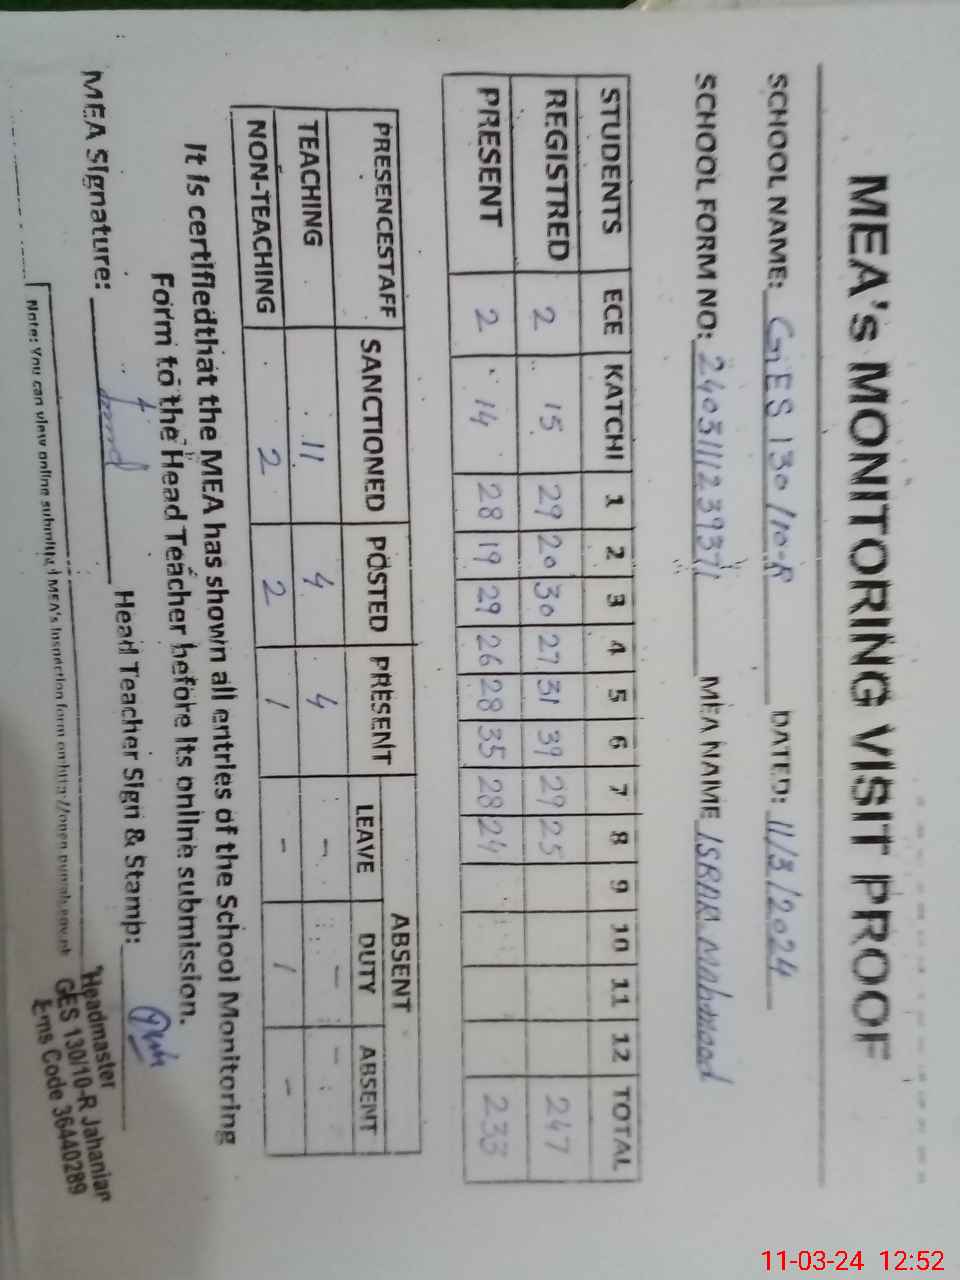 MEA's MONITORING VISIT PROOF
SCHOOL NAME: GES 130/10-R DATED: 11/3/2024
SCHOOL FORM NO: 2403111239371 MEA NAME ISRAR Mahmood
STUDENTS ECE KATCHI 1 2 3 4 5 6 7 8 9 10 11 12 TOTAL
REGISTRED 2 15 29 20 30 27 31 39 29 25 247
PRESENT 2 14 28 19 29 26 28 35 28 24 233
PRESENCESTAFF SANCTIONED POSTED PRESENT ABSENT
LEAVE DUTY ABSENT
TEACHING 11 4 4 - - -
NON-TEACHING 2 2 1 - 1 -
It is certifiedthat the MEA has shown all entries of the School Monitoring
Form to the Head Teacher before its online submission.
MEA Signature: Head Teacher Sign & Stamp:
Headmaster
GES 130/10-R Jahanian
Ems Code 36440289
Note: You can view online submitted MEA's Inspection form on http://open.punjab.gov.pk
11-03-24 12:52